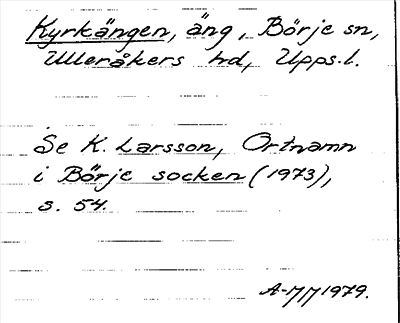 Kyrkängen, äng, Börje sn,
Ulleråkers hd, Upps. l.
Se K. Larsson, Ortnamn
i Börje socken (1973),
s. 54.
1979.